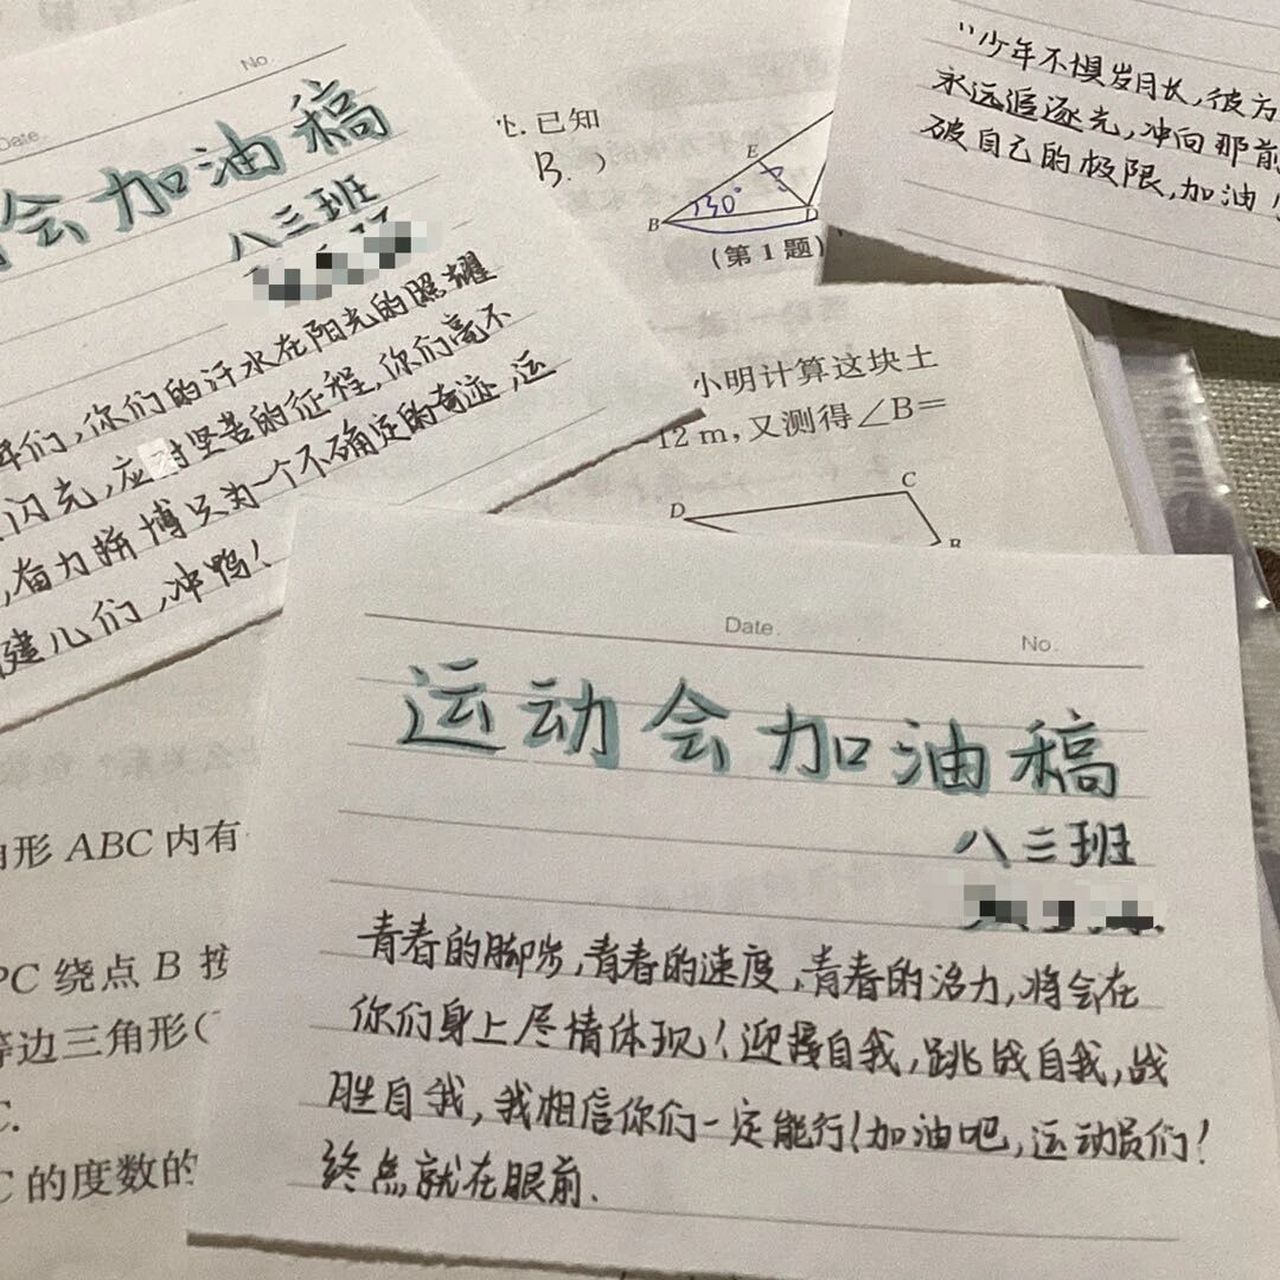 No.
Date.
会加油稿
八三班
年们，你们的汗水在阳光的照耀
闪光，应对坚苦的征程，你们毫不
，奋力拚博只为一个不确定的奇迹，运
健儿们，冲鸭！
已知
B. )
E
B
130°
D
(第1题)
"少年不惧岁月长，彼方
永远追逐光，冲向那前
破自己的极限，加油！
小明计算这块土
12 m，又测得∠B=
D
C
B
角形 ABC 内有
PC 绕点 B 按
等边三角形(
C.
C 的度数的
Date.
No.
运动会加油稿
八三班
青春的脚步，青春的速度，青春的活力，将会在
你们身上尽情体现！迎接自我，跳战自我，战
胜自我，我相信你们一定能行！加油吧，运动员们！
终点就在眼前.